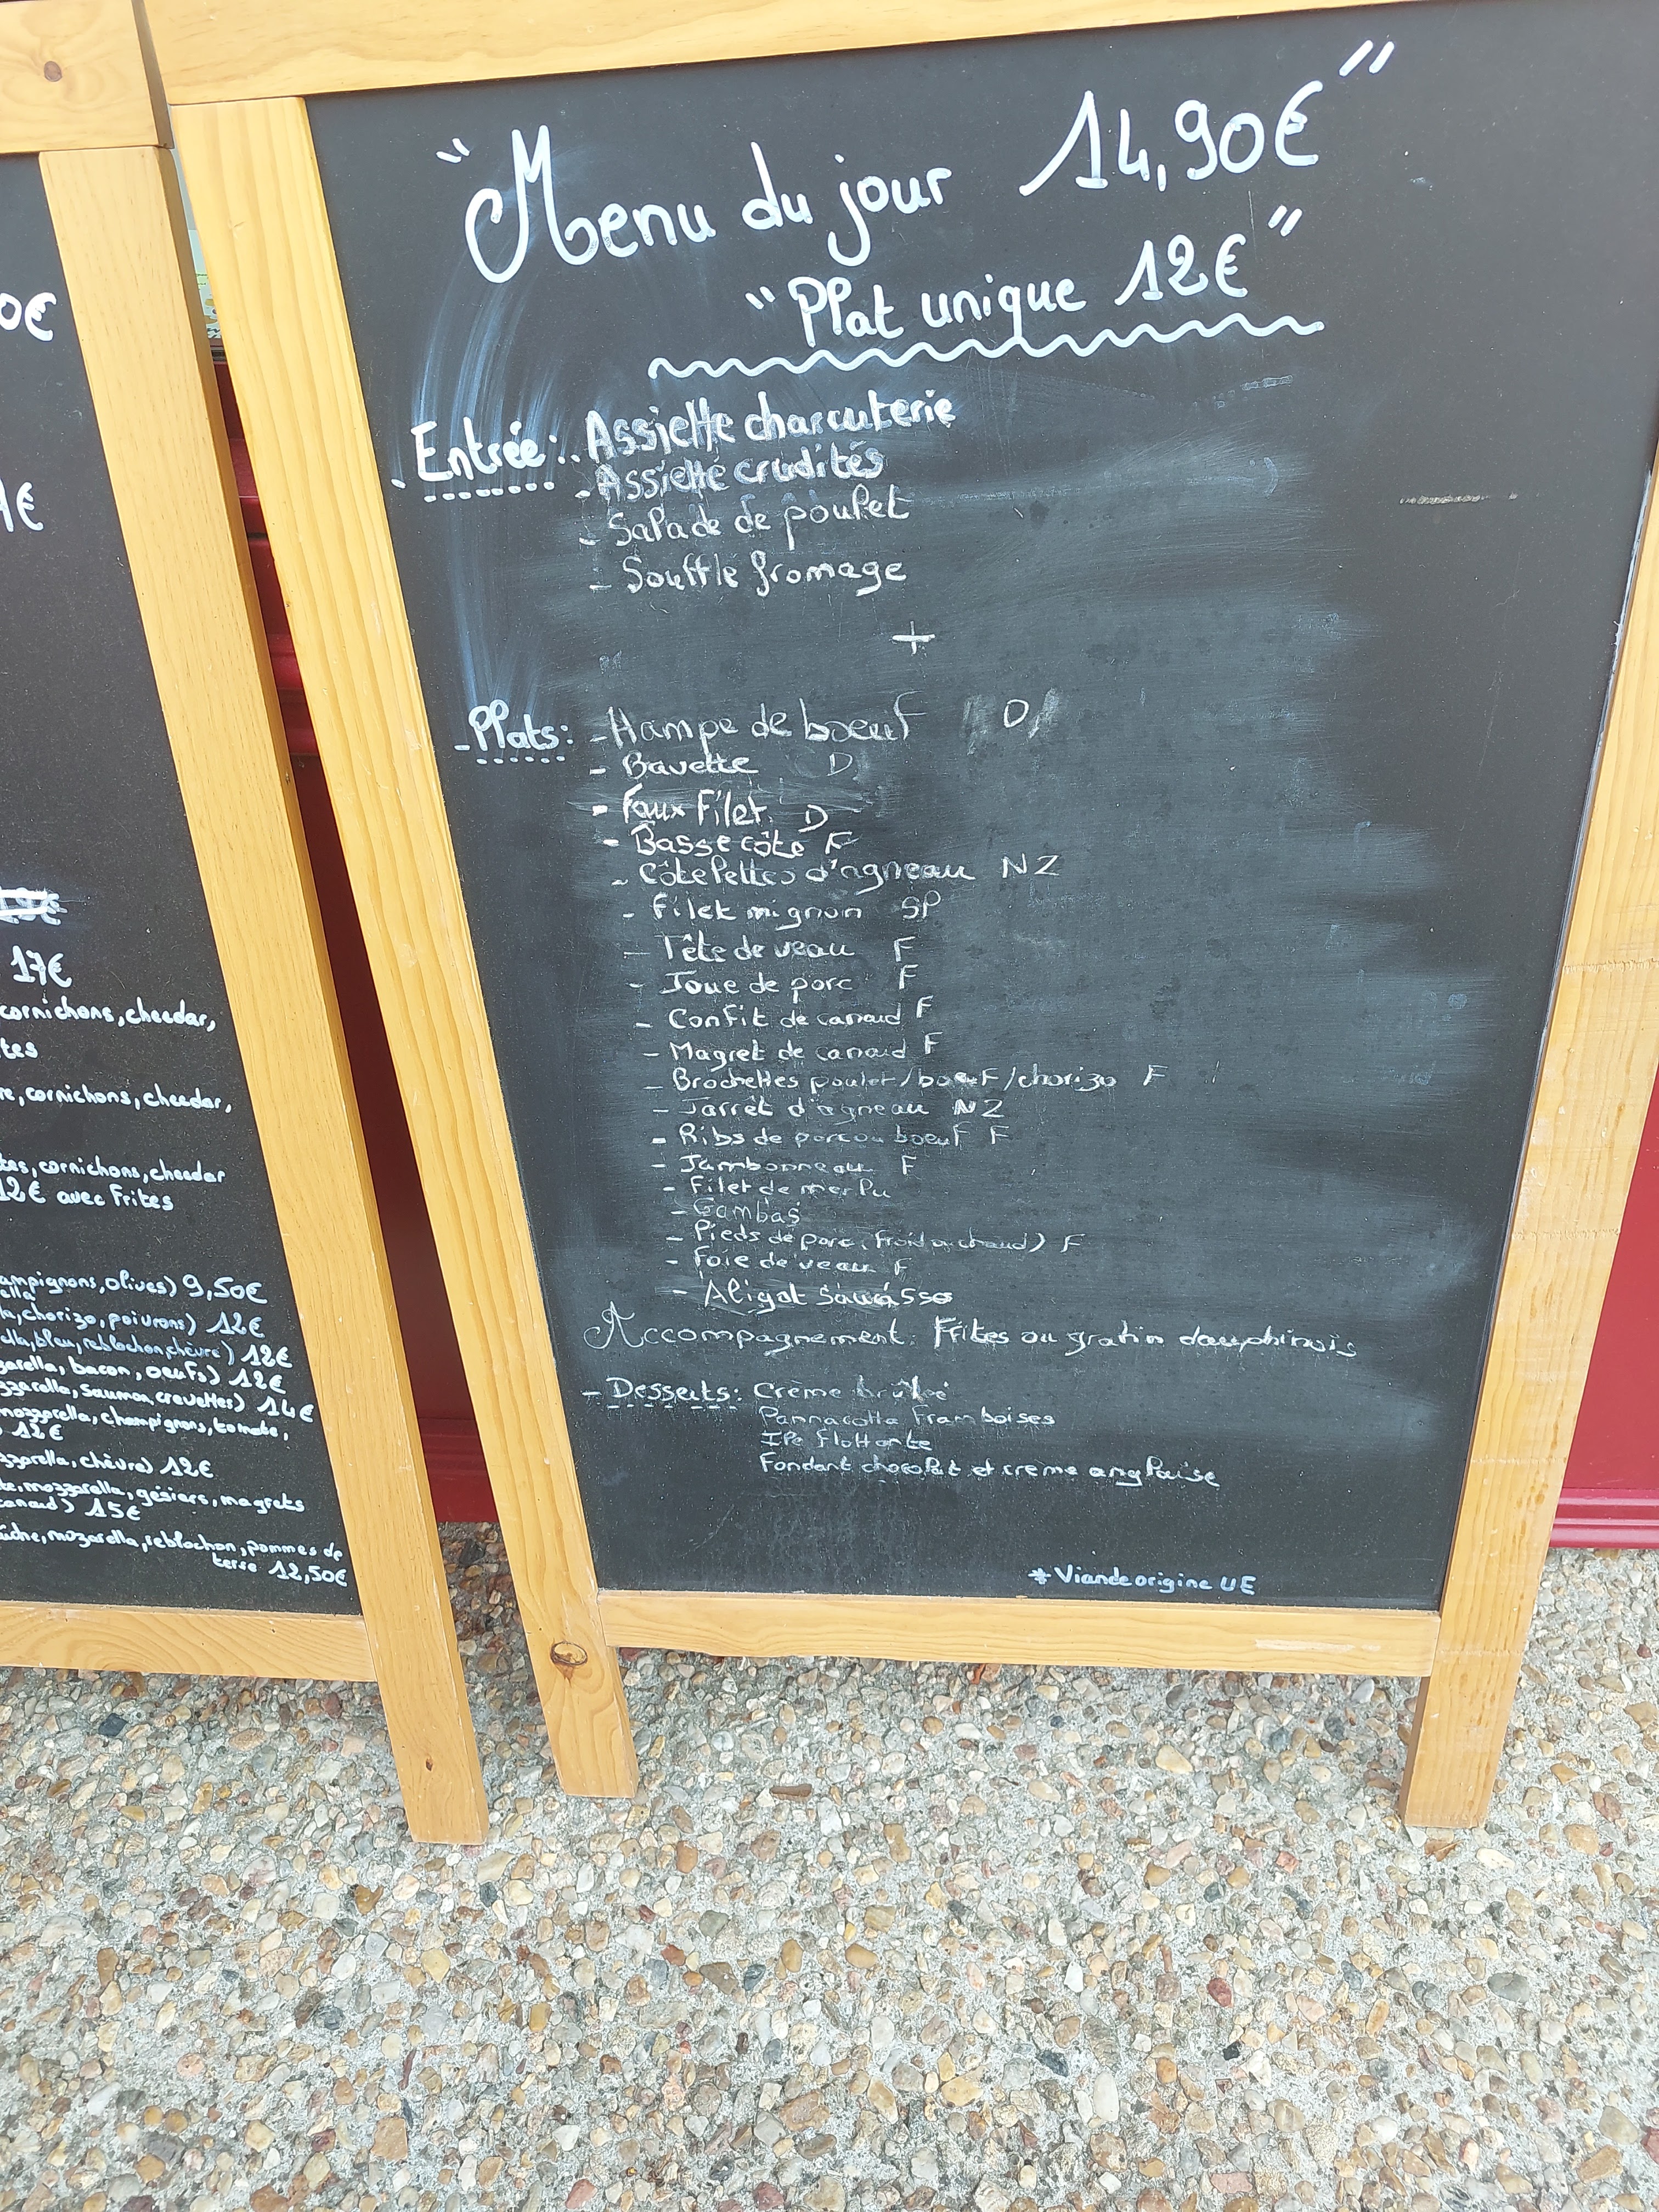 0€
1€
17€
cornichons, cheedar,
tes
re, cornichons, cheedar,
tes, cornichons, cheedar
12€ avec Frites
ampignons, olives) 9,50€
ella
la, chorizo, poivrons) 12€
ella, bleu, reblochon, chèvre) 12€
zarella, bacon, oeufs) 12€
zzarella, saumon, crevettes) 14€
mozzarella, champignons, tomate,
12€
zzarella, chèvre) 12€
te, mozzarella, gésiers, magrets
canard) 15€
ûche, mozarella, reblochon, pommes de
terre 12,50€
"Menu du jour 14,90€"
"Plat unique 12€"
- Entrée: - Assiette charcuterie
- Assiette crudités
- Salade de poulet
- Soufflé fromage
+
- Plats: - Hampe de boeuf D
- Bavette D
- Faux Filet D
- Basse côte F
- Côtelettes d'agneau NZ
- Filet mignon SP
- Tête de veau F
- Joue de porc F
- Confit de canard F
- Magret de canard F
- Brochettes poulet/boeuf/chorizo F
- Jarret d'agneau NZ
- Ribs de porc ou boeuf F
- Jambonneau F
- Filet de merlu
- Gambas
- Pieds de porc (froid ou chaud) F
- Foie de veau F
- Aligot
Accompagnement: Frites ou gratin dauphinois
- Desserts: Crème brûlée
Pannacotta Framboises
Ile flottante
Fondant chocolat et crème anglaise
* Viande origine UE